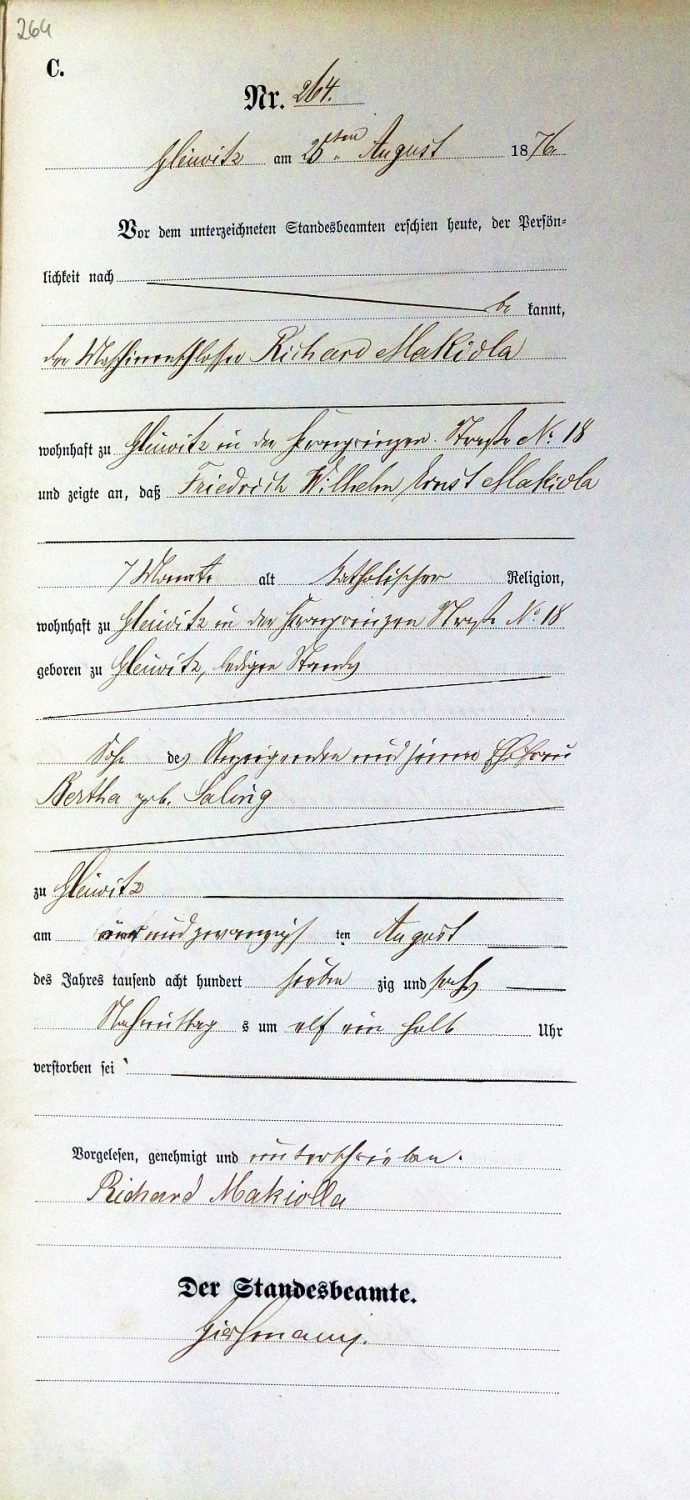 264
C.
Nr. 264.
Gleiwitz am 25sten August 1876
Vor dem unterzeichneten Standesbeamten erschien heute, der Persön-
lichkeit nach
be kannt,
der Maschinenschlosser Richard Makiola
wohnhaft zu Gleiwitz in der Kronprinzen-Straße No 18
und zeigte an, daß Friedrich Wilhelm Ernst Makiola
7 Monate alt katholischer Religion,
wohnhaft zu Gleiwitz in der Kronprinzen Straße No 18
geboren zu Gleiwitz, ledigen Standes
Sohn des Anzeigenden und seiner Ehefrau
Bertha geb. Saling
zu Gleiwitz
am und zwanzigsten August
des Jahres tausend acht hundert sieben zig und sechs
Nachmittag s um elf ein halb Uhr
verstorben sei
Vorgelesen, genehmigt und unterschrieben.
Richard Makiolla
Der Standesbeamte.